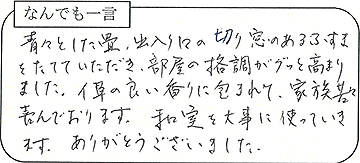 なんでも一言
青々とした畳、出入り口の切り窓のあるふすま
をたてていただき、部屋の格調がグッと高まり
ました。イ草の良い香りに包まれて、家族皆々
喜んでおります。 和室を大事に使っていき
ます。ありがとうございました。